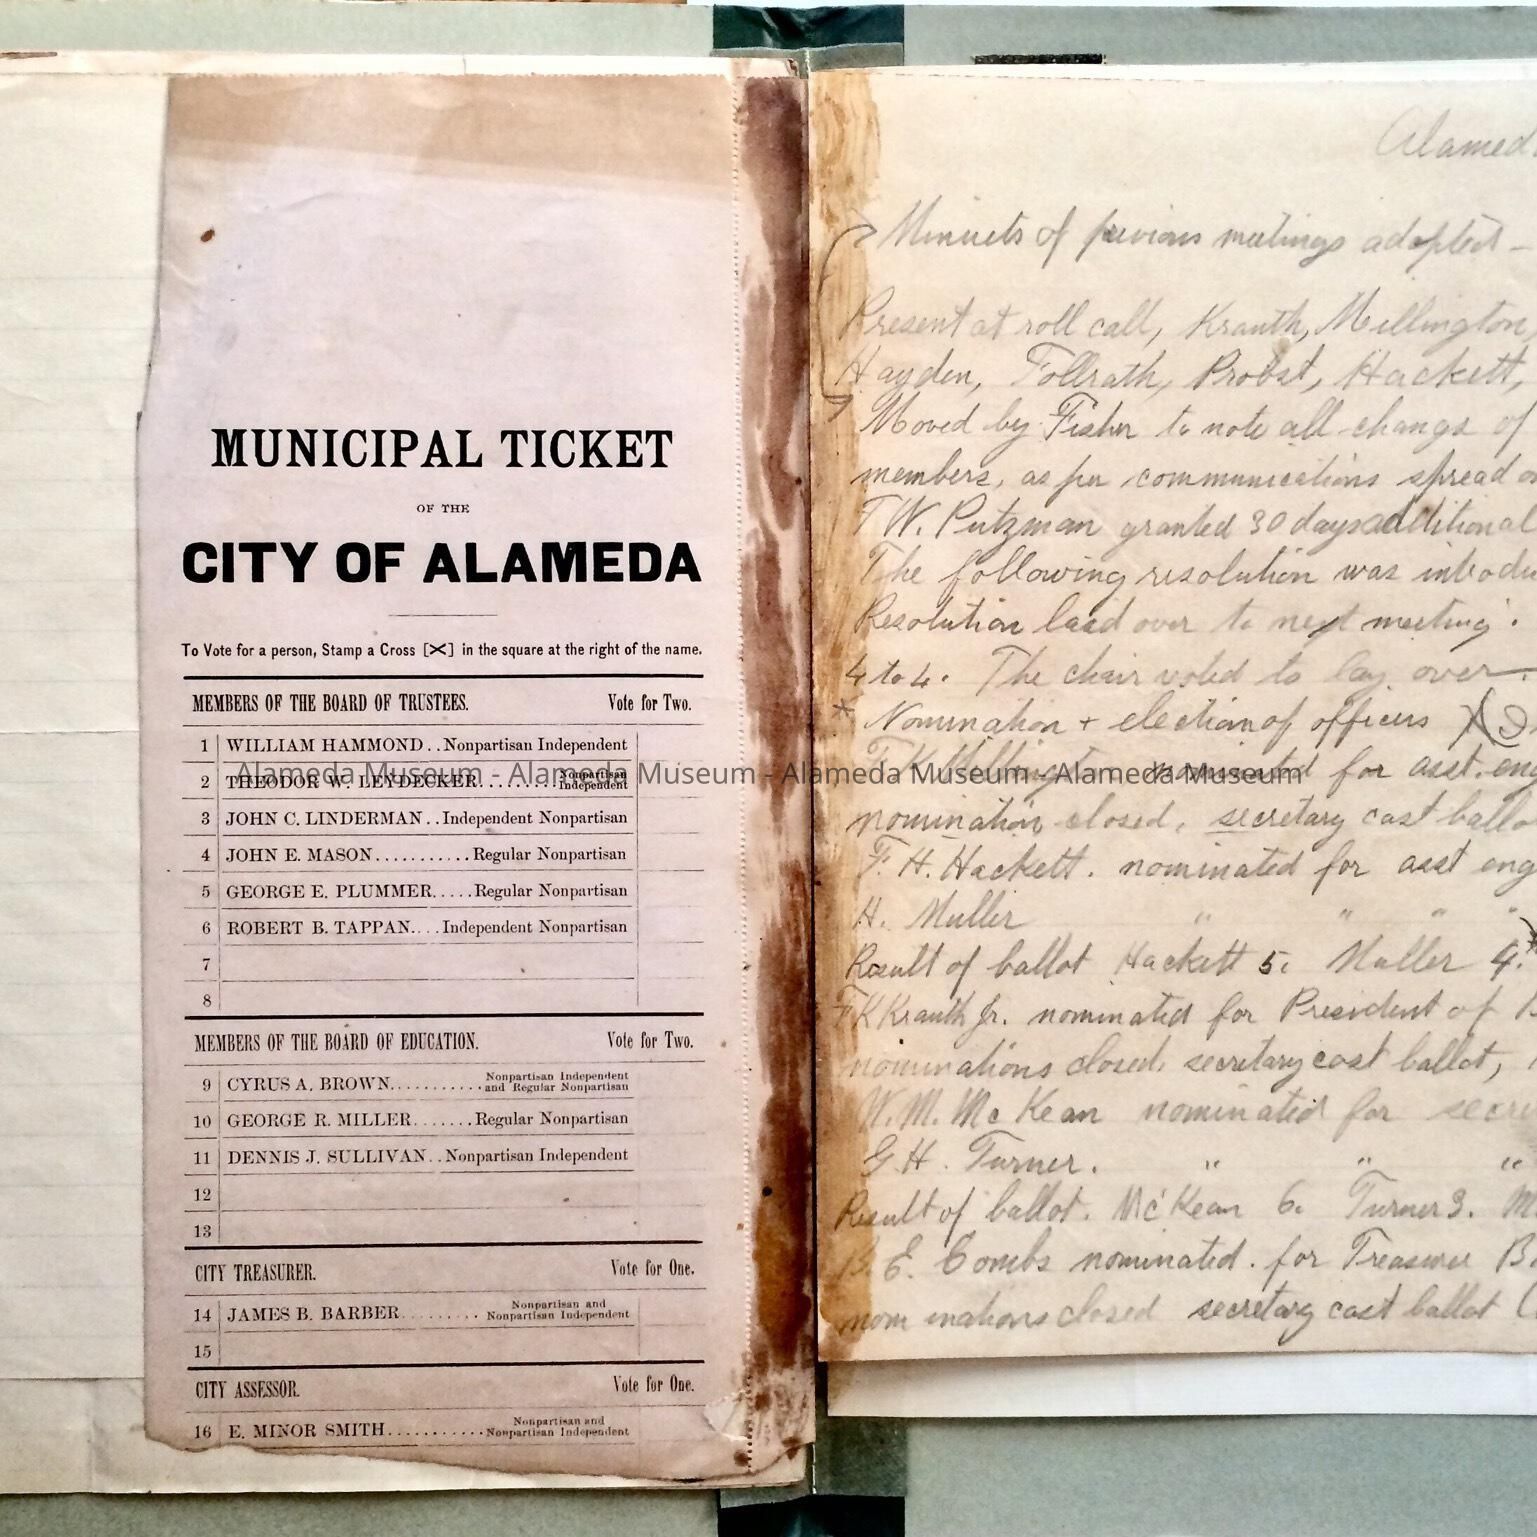 MUNICIPAL TICKET
OF THE
CITY OF ALAMEDA
To Vote for a person, Stamp a Cross [X] in the square at the right of the name.
MEMBERS OF THE BOARD OF TRUSTEES. Vote for Two.
1 WILLIAM HAMMOND..Nonpartisan Independent
2 THEODOR W. LEYDECKER.........Nonpartisan Independent
3 JOHN C. LINDERMAN..Independent Nonpartisan
4 JOHN E. MASON...........Regular Nonpartisan
5 GEORGE E. PLUMMER.....Regular Nonpartisan
6 ROBERT B. TAPPAN....Independent Nonpartisan
7
8
MEMBERS OF THE BOARD OF EDUCATION. Vote for Two.
9 CYRUS A. BROWN...........Nonpartisan Independent and Regular Nonpartisan
10 GEORGE R. MILLER.......Regular Nonpartisan
11 DENNIS J. SULLIVAN..Nonpartisan Independent
12
13
CITY TREASURER. Vote for One.
14 JAMES B. BARBER.........Nonpartisan and Nonpartisan Independent
15
CITY ASSESSOR. Vote for One.
16 E. MINOR SMITH...........Nonpartisan and Nonpartisan Independent
Alameda Museum - Alameda Museum - Alameda Museum - Alameda Museum
Alamed
Minuets of previous meetings adopted -
Present at roll call, Krauth, Millington,
Hayden, Follrath, Probst, Hackett,
Moved by Fisher to note all change of
members, as per communications spread
T W. Putzman granted 30 days additional
The following resolution was introdu
Resolution laid over to next meeting.
4 to 4. The chair voted to lay over
* Nomination + election of officers
nominated for asst. eng
nomination closed, secretary cast ballo
F. H. Hackett. nominated for asst eng
H. Muller " " " "
Result of ballot Hackett 5. Muller 4.
F K Krauth Jr. nominated for President of
nominations closed, secretary cast ballot,
W. M. McKean nominated for secre
G H. Turner. " " "
Result of ballot. McKean 6. Turner 3.
B. E. Combs nominated. for Treasurer B.
nominations closed secretary cast ballot